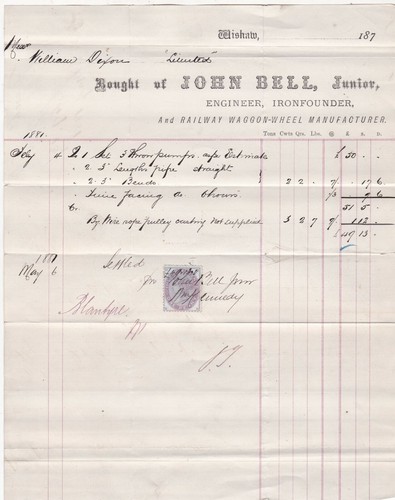 Wishaw, 187
Messrs William Dixon Limited
Bought of JOHN BELL, Junior,
ENGINEER, IRONFOUNDER,
And RAILWAY WAGGON-WHEEL MANUFACTURER.
1881. Tons Cwts Qrs. Lbs. @ £ s. D.
4 1 Set 3 Throw pumps as p Estimate £ 50 . .
" 2. 3 Lengths pipe straight
" 2. 3 Bends 2 2 . 17 6
Time facing 
By Wire rope pulley casting not supplied 3 2 7 1 12
£ 49 13 .
1881
May 6 Settled
for John Bell Junr
Kennedy